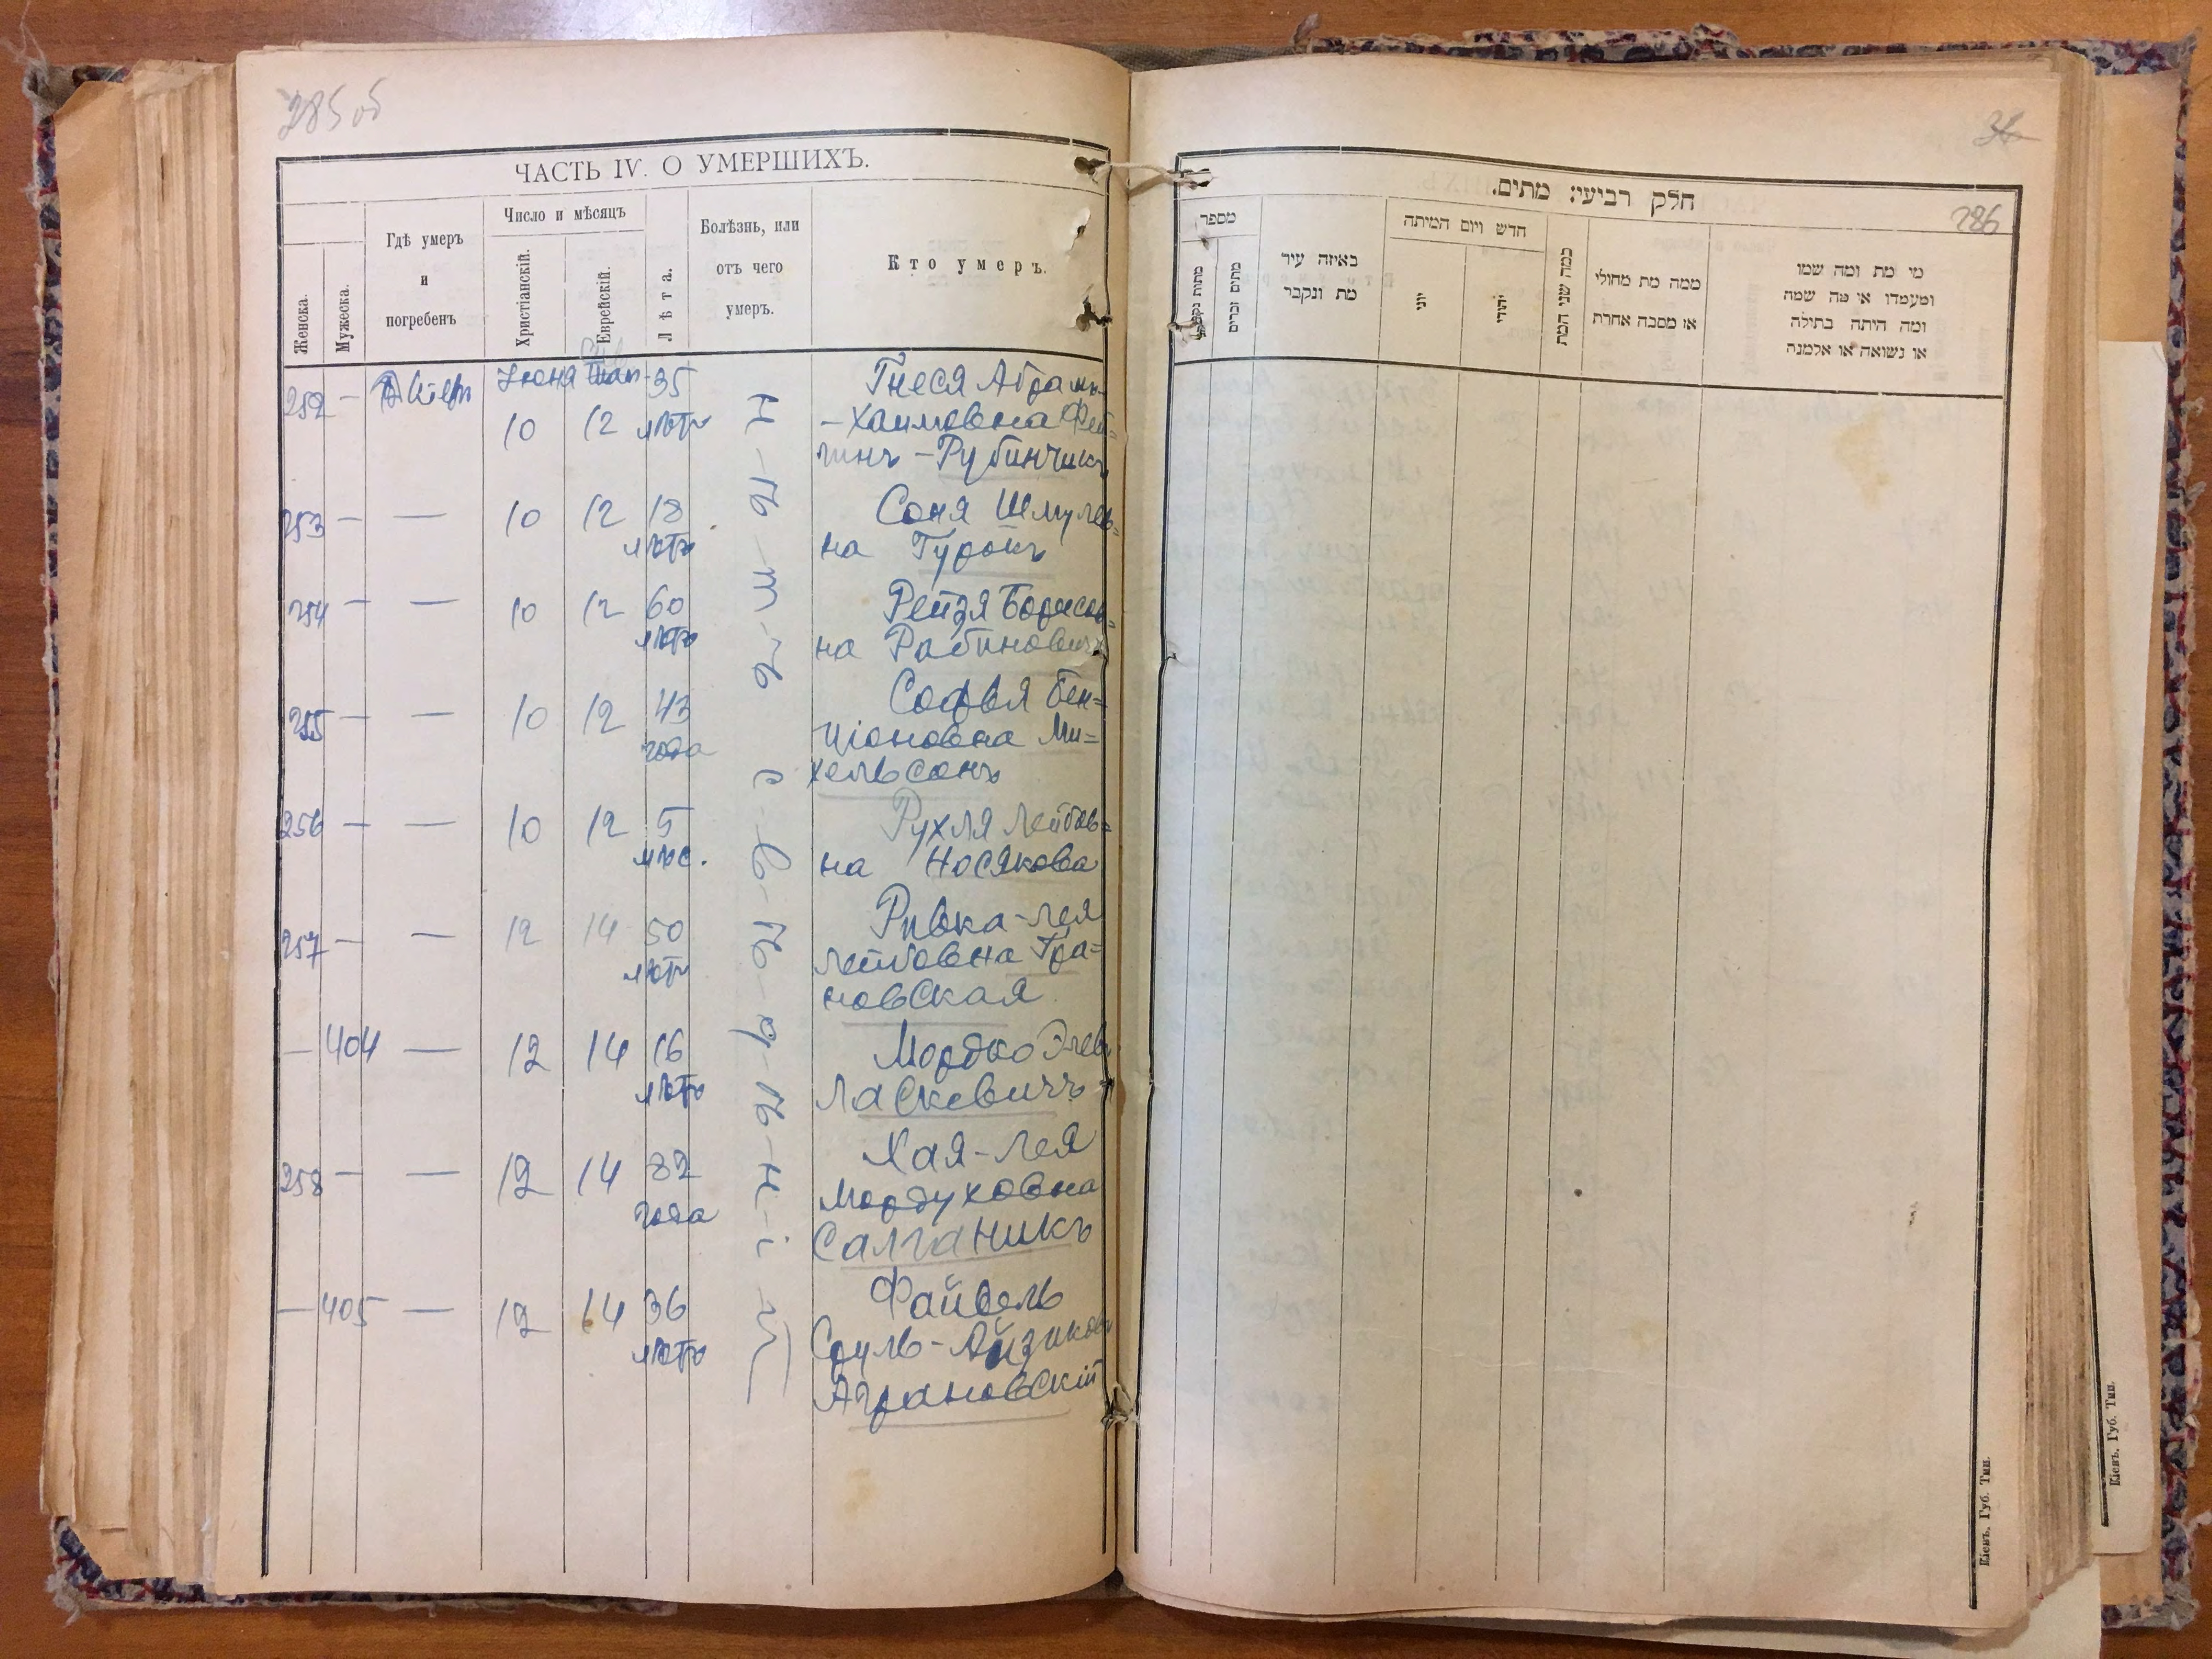 285 об
ЧАСТЬ IV. О УМЕРШИХЪ.
Женска.
Мужеска.
Гдѣ умеръ
и
погребенъ
Число и мѣсяцъ
Христіанскій.
Еврейскій.
Лѣта.
Болѣзнь, или
отъ чего
умеръ.
Кто умеръ.
252 — Кіевъ Іюня 35 Гнеся Абрамъ-
10 12 лѣтъ -Хаимовна Фей=
гинъ-Рубинчикъ
253 — — 10 12 18 Соня Шмулев=
лѣтъ на Турокъ
254 — — 10 12 60 Рейзя Борисов=
лѣтъ на Рабиновичъ
255 — — 10 12 43 Софья Бен=
года ціоновна Ми=
хельсонъ
256 — — 10 12 5 Рухля Лейбов=
мѣс. на Носякова
257 — — 12 14 50 Ривка-Лея
лѣтъ Лейбовна Гра=
новская
— 404 — 12 14 16 Мордко
лѣтъ Ласкевичъ
258 — — 12 14 82 Хая-Лея
года Мордуховна
Салганикъ
— 405 — 12 14 36 Файвель
лѣтъ Сруль-Айзиков
Аграновскій
36
286
חלק רביעי: מתים.
מספר
מתות נקבות
מתים זכרים
באיזה עיר
מת ונקבר
חדש ויום המיתה
יוני
יהודי
כמה שני המת
ממה מת מחולי
או מסבה אחרת
מי מת ומה שמו
ומעמדו או מה שמה
ומה היתה בתולה
או נשואה או אלמנה
Кіевъ, Губ. Тип.
Кіевъ, Губ. Тип.